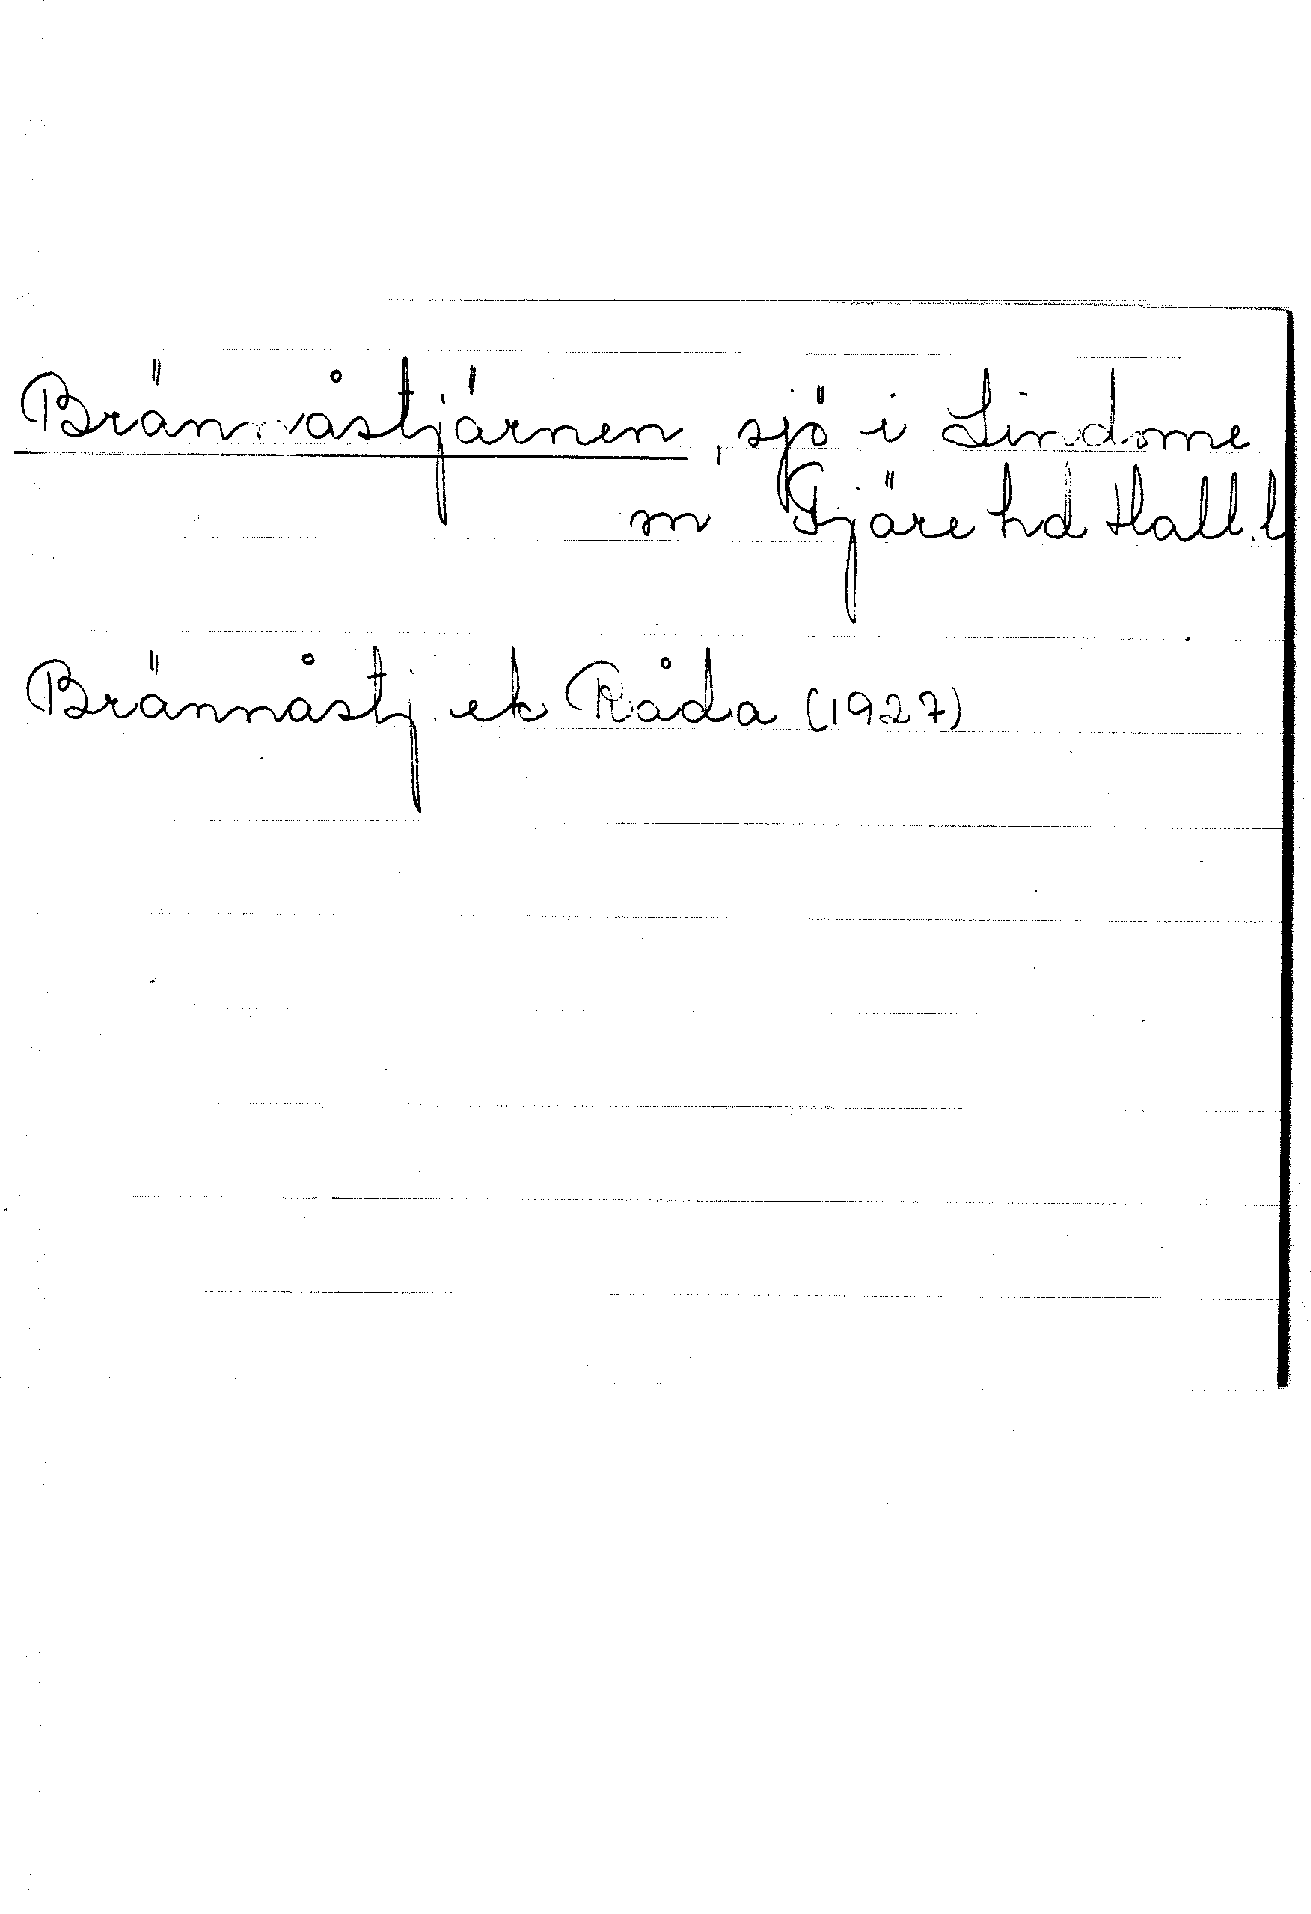 Brännåstjärnen, sjö i Lindome
sn Fjäre hd Hall. l
Brännåstj ek Råda (1927)